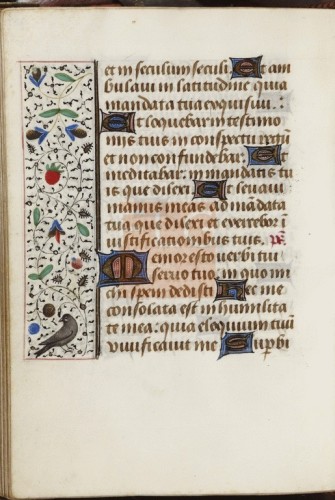 et in seculum seculi Et am
bulavi in latitudine quia
mandata tua exquisivi.
Et loquebar in testimo
niis tuis in conspectu regum
et non confundebar. Et
meditabar in mandatis tu
is que dilexi Et levavi
manus meas ad mandata
tua que dilexi et exercebor in
iustificationibus tuis. ps
Memor esto verbi tui
servo tuo, in quo mi
chi spem dedisti Hec me
consolata est in humilita
te mea: quia eloquium tuum
vivificavit me Superbi